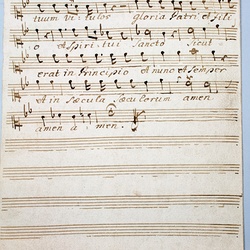 tuum Vitulos gloria Patri et Fili
o et Spiritui Sancto Sicut
erat in Principio et nunc et Semper
et in Sæcula Sæculorum amen
amen a men.